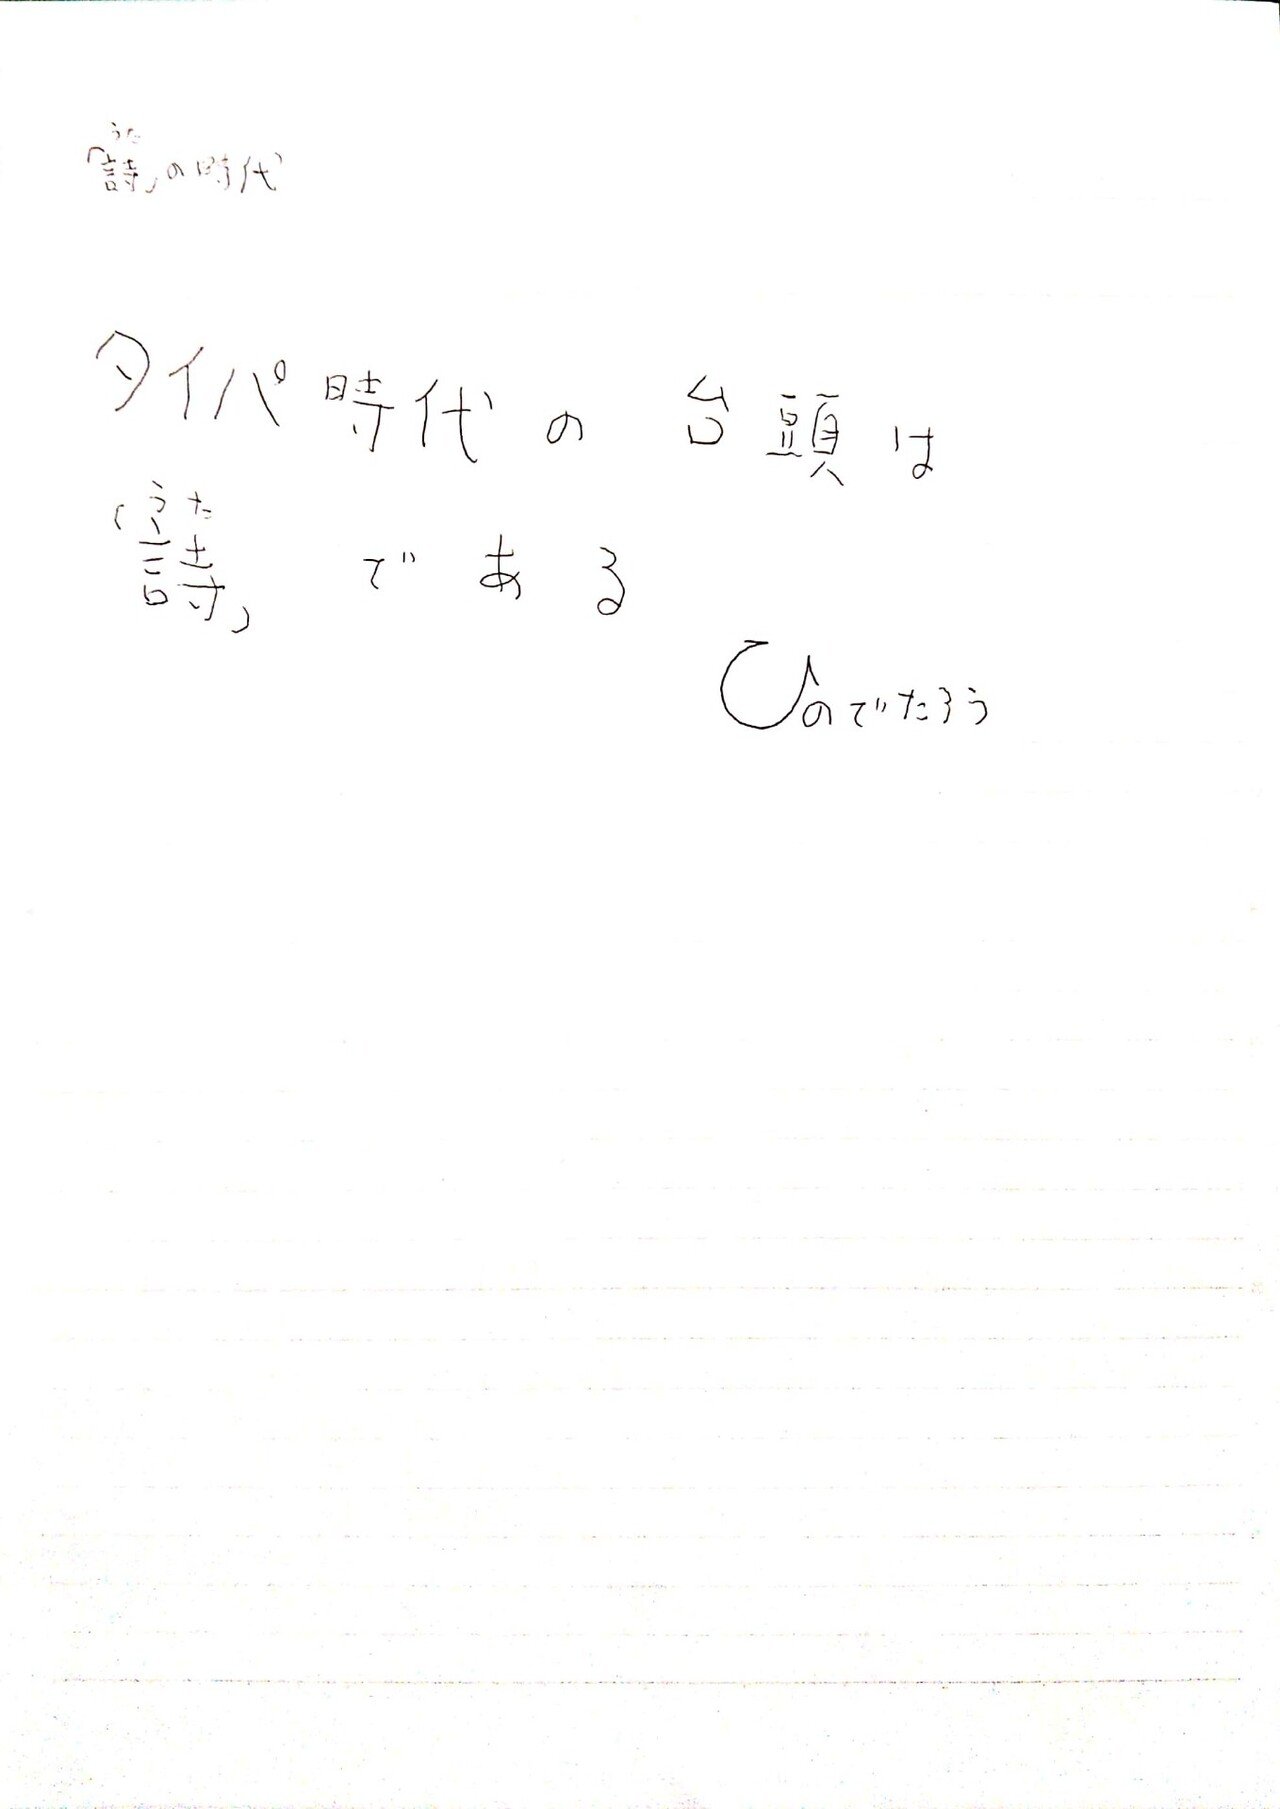 うた
「詩」の時代
タイパ時代の 台頭は
うた
「詩」である
ひのでたろう